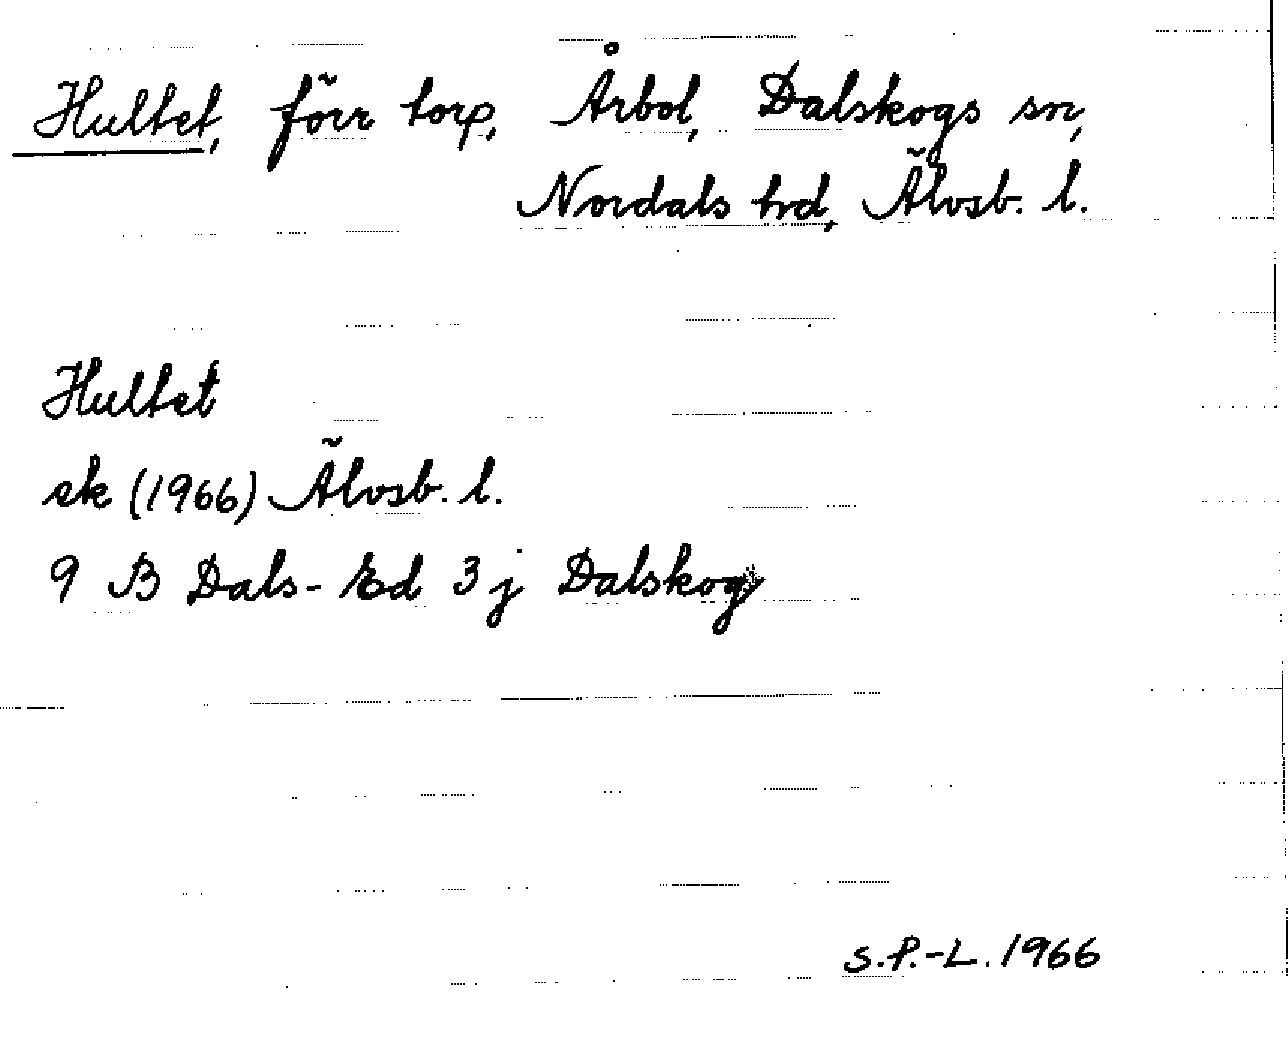 Hultet, förr torp, Årbol, Dalskogs sn,
Nordals hd, Älvsb. l.
Hultet
ek (1966) Älvsb. l.
9 B Dals-Ed 3 j Dalskog
S.P.-L. 1966